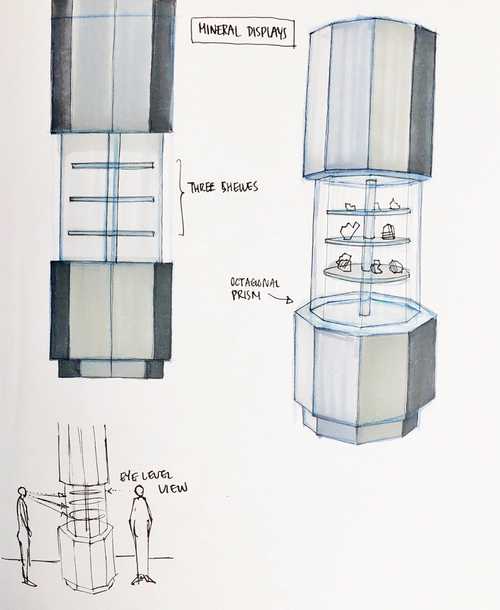 MINERAL DISPLAYS
THREE SHELVES
OCTAGONAL
PRISM
EYE LEVEL
VIEW